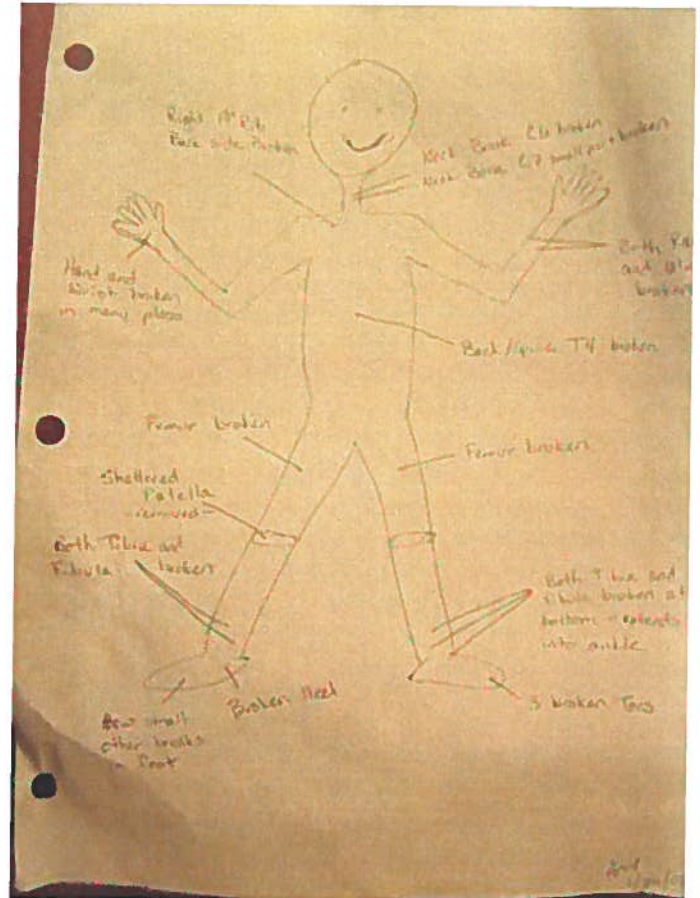 Right 1st Rib
Back side Broken
Neck Bone C6 broken
Neck Bone C7 small part broken
Hand and
wrist broken
in many places
Both
and
broken
Back/spine T4 broken
Femur broken
Femur broken
Shattered
Patella
-removed-
Both Tibia and
Fibula broken
Both Tibia and
Fibula broken at
bottom - extends
into ankle
Broken Heel
3 broken Toes
small
other breaks
in foot